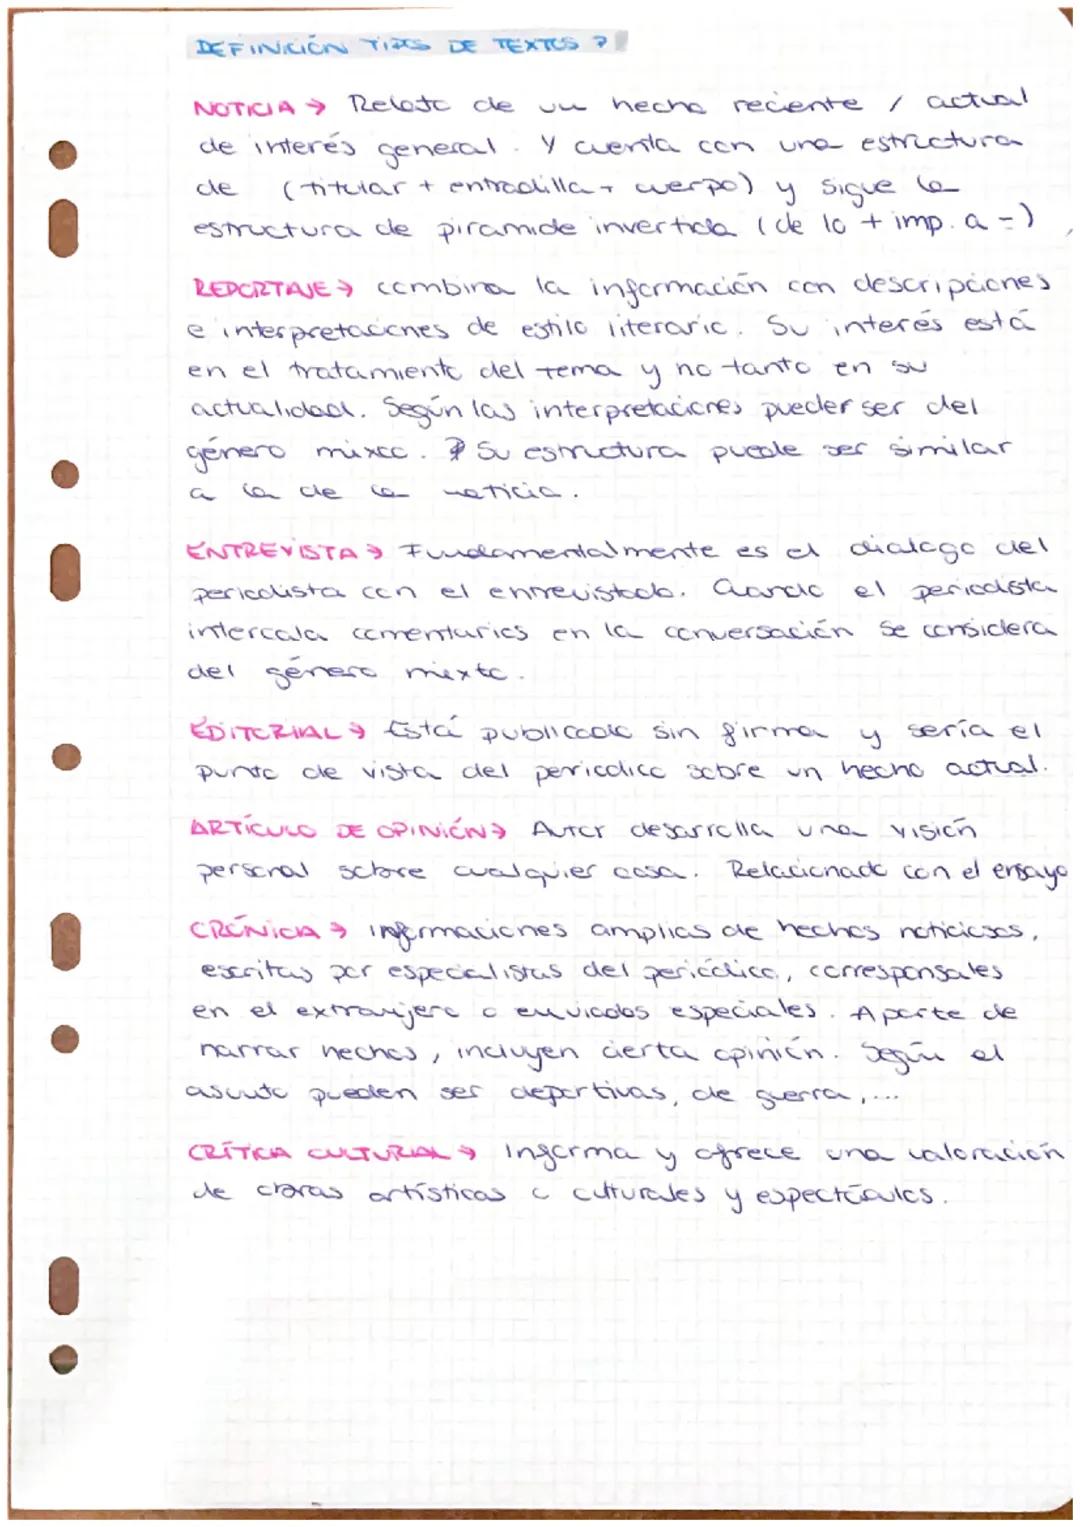 DEFINICIÓN TIPOS DE TEXTOS 7
NOTICIA → Relato de un hecho reciente / actual
de interés general. Y cuenta con una estructura
de (titular + entradilla + cuerpo) y sigue la
estructura de piramide invertida (de lo + imp. a -)
REPORTAJE → combina la información con descripciones
e interpretaciones de estilo literario. Su interés está
en el tratamiento del tema y no tanto en su
actualidad. Según las interpretaciones pueden ser del
género mixto. Su estructura puede ser similar
a la de la noticia.
ENTREVISTA → Fundamentalmente es el dialogo del
periodista con el entrevistado. Cuando el periodista
intercala comentarios en la conversación se considera
del género mixto.
EDITORIAL → Está publicado sin firma y sería el
punto de vista del periodico sobre un hecho actual.
ARTÍCULO DE OPINIÓN → Autor desarrolla una visión
personal sobre cualquier cosa. Relacionado con el ensayo
CRÓNICA → informaciones amplias de hechos noticiosos,
escritas por especialistas del periódico, corresponsales
en el extranjero o enviados especiales. Aparte de
narrar hechos, incluyen cierta opinión. Según el
asunto pueden ser deportivas, de guerra,...
CRÍTICA CULTURAL → Informa y ofrece una valoración
de obras artísticas o culturales y espectáculos.